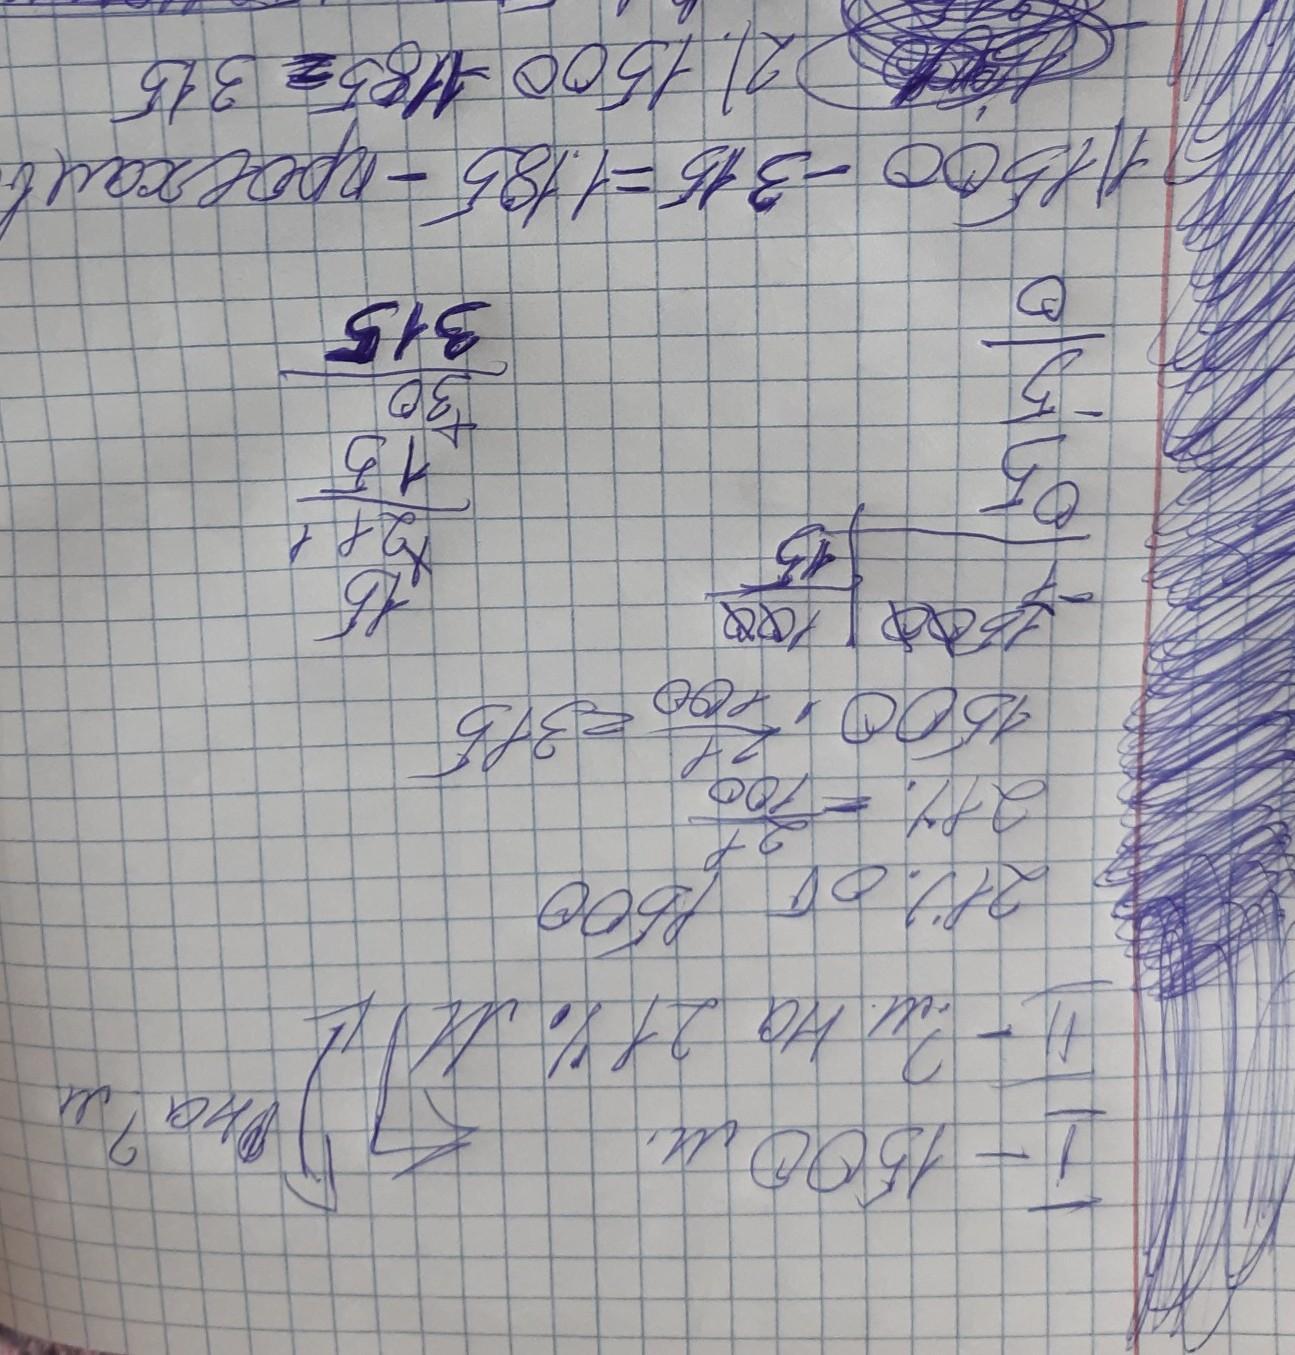 I - 1500 м.
II - ? м. на 21% М
на ? м
21% от 1500
21% = 21/100
1500 · 21/100 = 315
1500 | 100
-1 15
05
-5
0
15
×21
15
+30
315
1) 1500 - 315 = 1.185 - проехали
2) 1500 - 1185 = 315